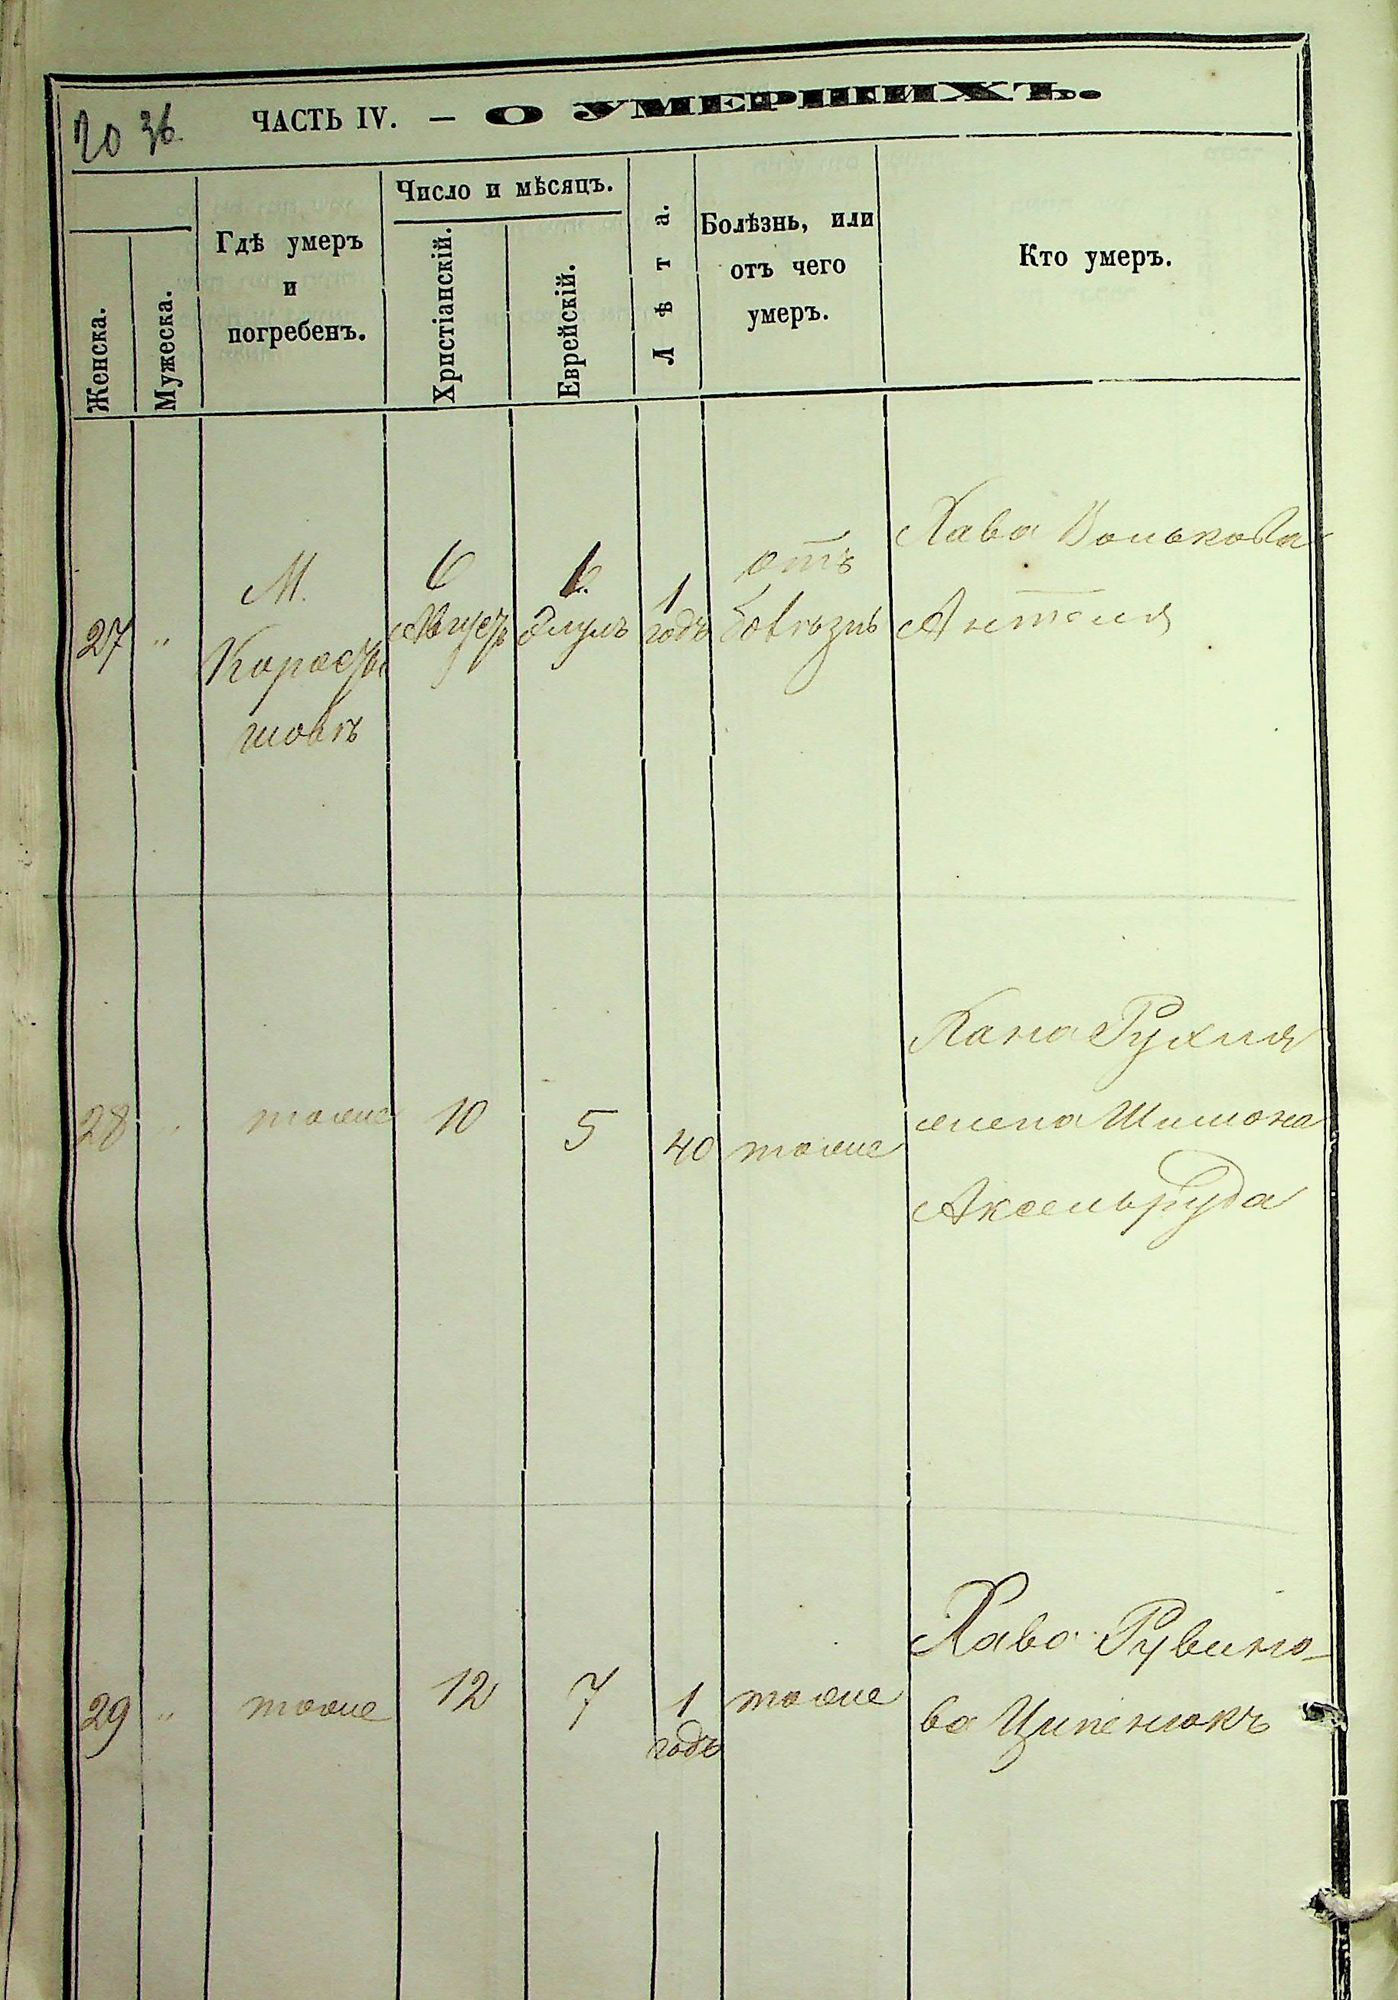 20 36.
ЧАСТЬ IV. — О УМЕРШИХЪ.
Женска.
Мужеска.
Гдѣ умеръ
и
погребенъ.
Число и мѣсяцъ.
Христіанскій.
Еврейскій.
Лѣта.
Болѣзнь, или
отъ чего
умеръ.
Кто умеръ.
27 "
М.
6
Августъ
Элулъ
1
годъ
отъ
болѣзнь
Хава Волькова
28
тоже
10
5
40
тоже
Хана Рухля
жена Шимона
Аксельруда
29 "
тоже
12
7
1
годъ
тоже
Хава Рувино-
ва Ципенюкъ